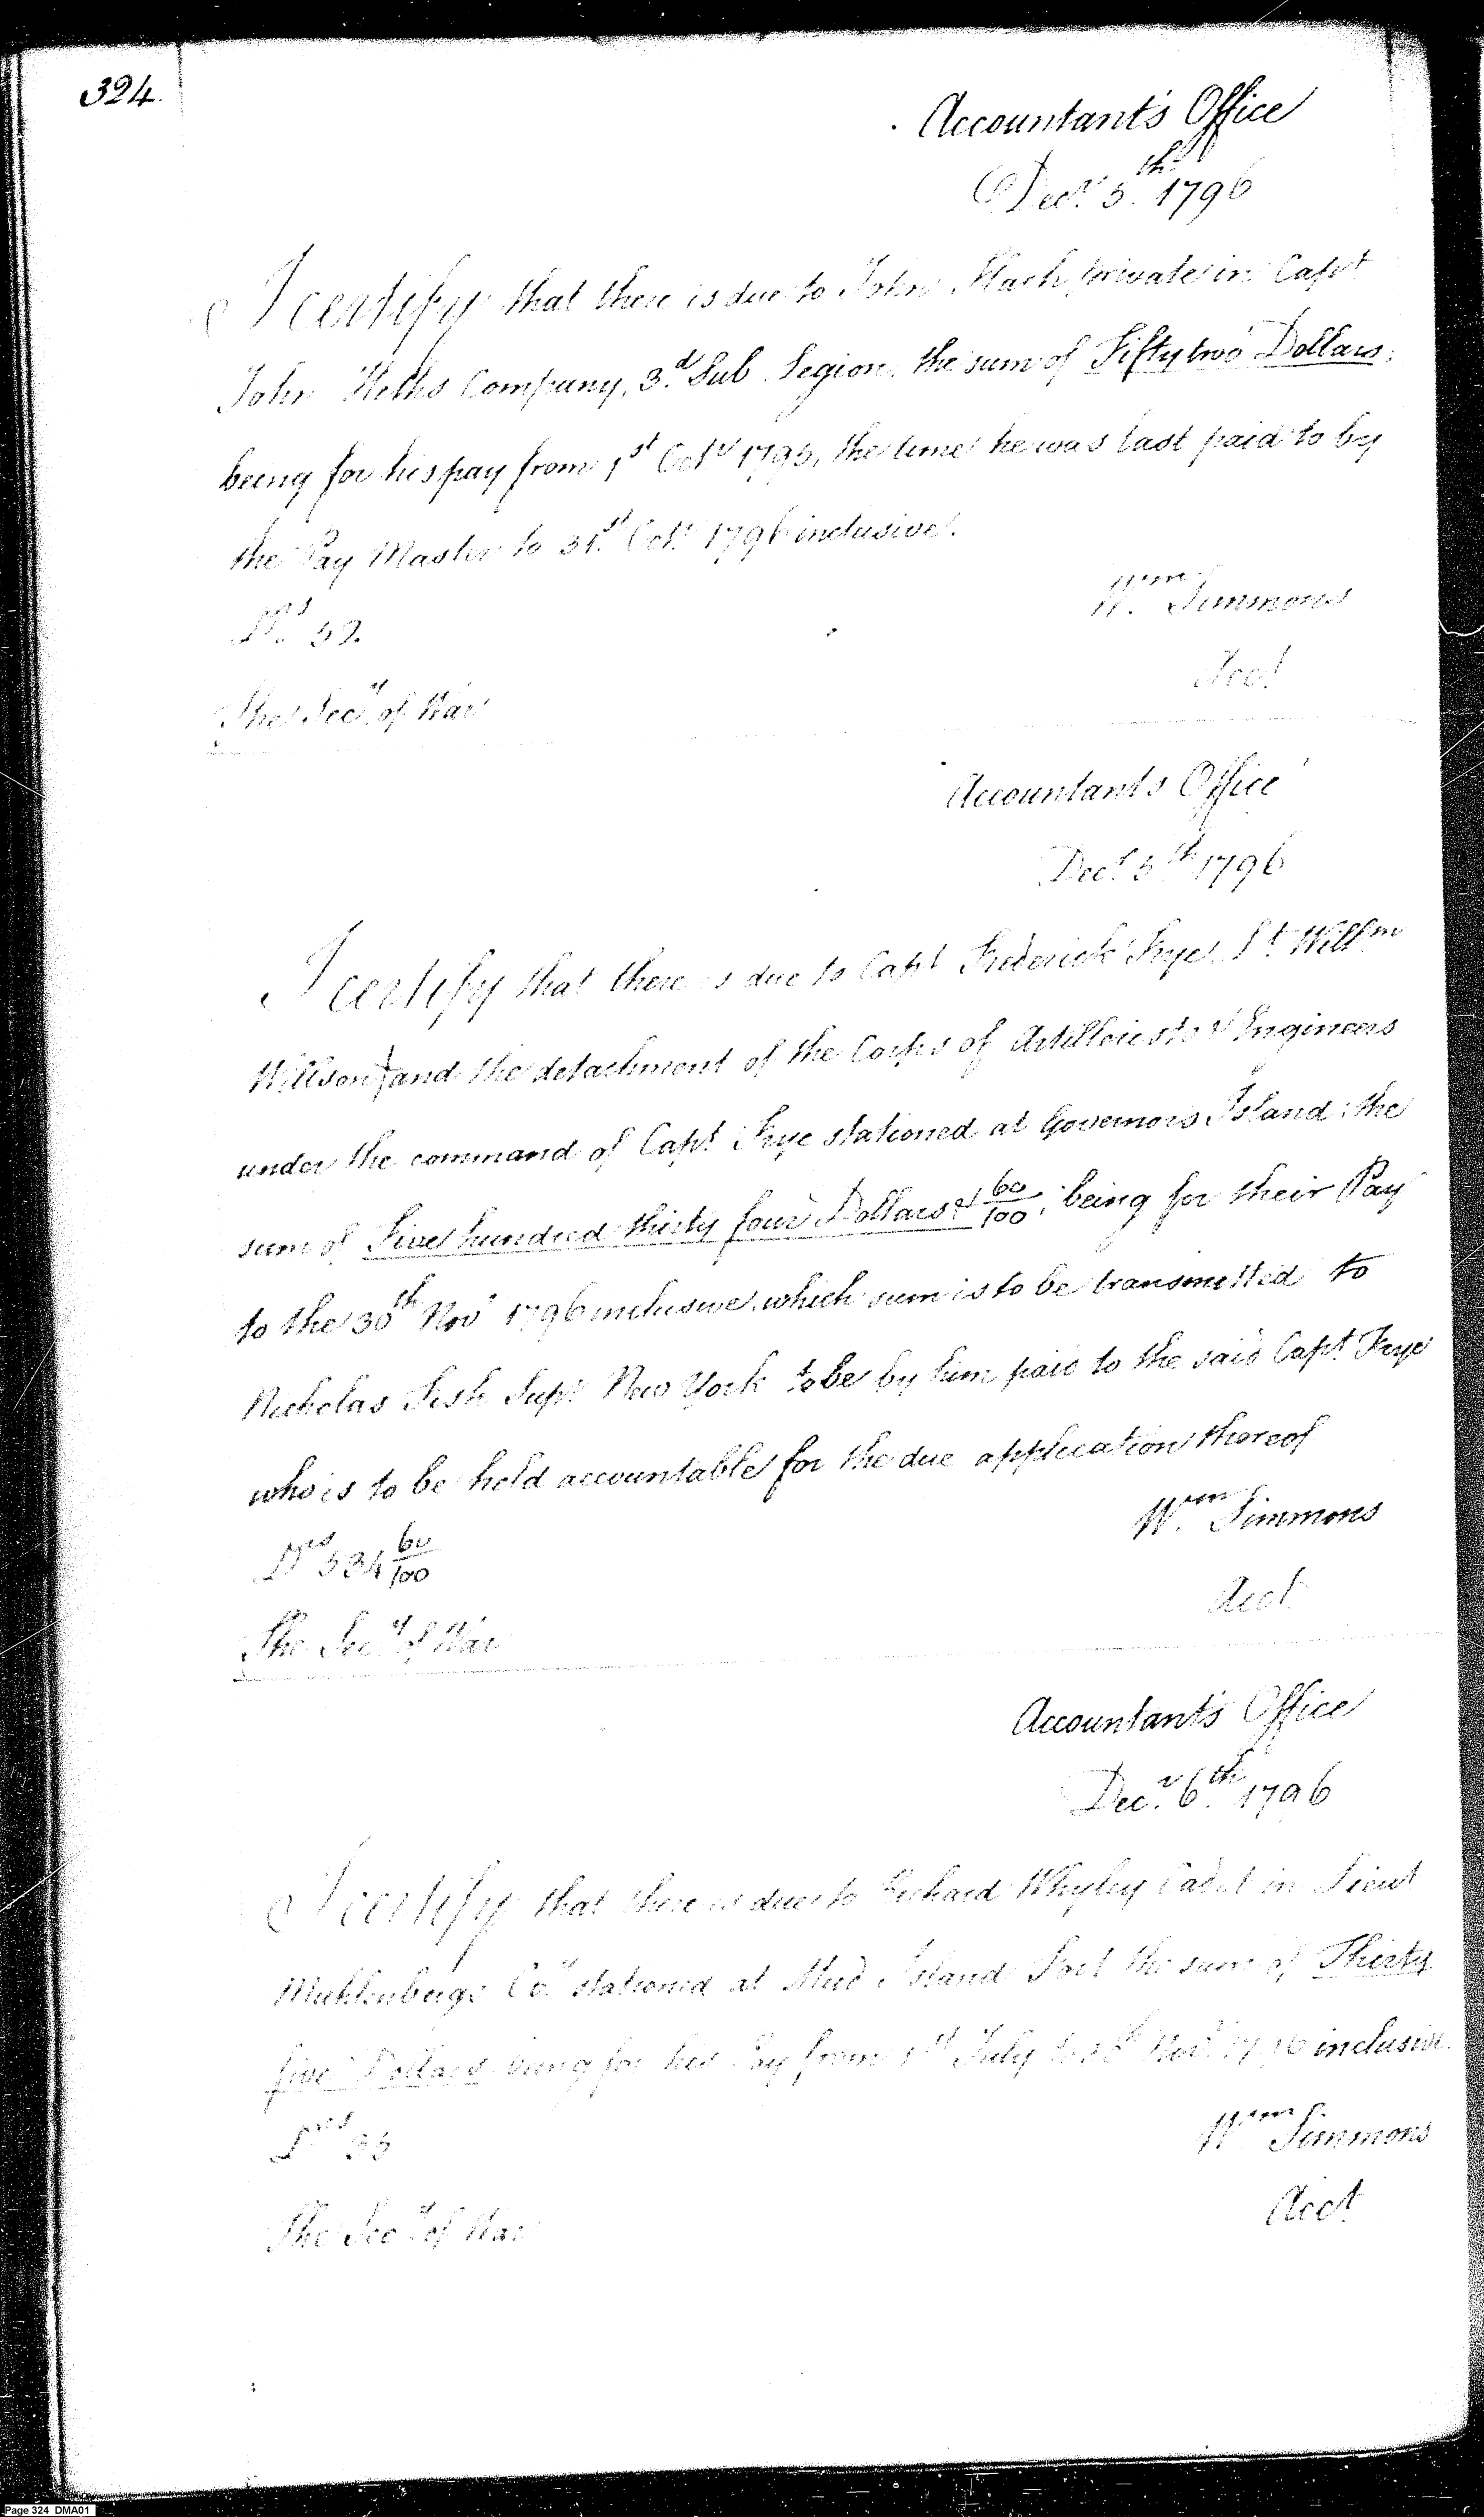 324
Accountant's Office
Decr. 5th. 1796
I certify that there is due to John private in Capt
John Heths Company, 3.d Sub Legion, the sum of Fifty two Dollars,
being for his pay from 1st Octr 1795, the time he was last paid to by
the Pay Master to 31.st Octr. 1796 inclusive.
Drs 52.
Wm. Simmons
Acct
The Secy. of War
Accountants Office
Decr 5th 1796
I certify that there is due to Capt Frederick Frye, Lt. Willm
Willson, and the detachment of the Corps of Artillerists & Engineers
under the command of Capt Frye stationed at Governors Island; the
sum of Five hundred thirty four Dollars & 60/100, being for their Pay
to the 30th Novr 1796 inclusive, which sum is to be transmitted to
Nicholas Fish Supr. New York to be by him paid to the said Capt. Frye
who is to be held accountable for the due application thereof
Wm. Simmons
Drs 534 60/100
Acct
The Secy. of War
Accountant's Office
Decr. 6th. 1796
I certify that there is due to Richard Whyley Cadet in Lieut
Muhlenbergs Coy. stationed at Mud Island Fort the sum of Thirty
five Dollars being for his Pay from 1st July to 30th Novr. 1796 inclusive.
Drs 35
Wm Simmons
Acct
The Secy. of War
Page 324 DMA01